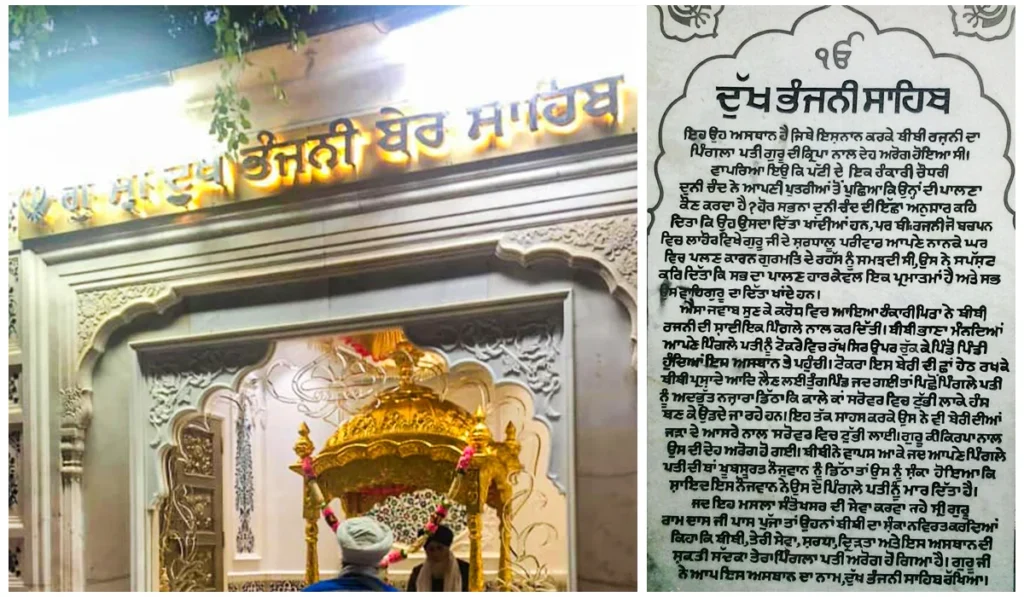 ਗੁ ਸ੍ਰੀ ਦੁਖ ਭੰਜਨੀ ਬੇਰ ਸਾਹਿਬ
ੴ
ਦੁੱਖ ਭੰਜਨੀ ਸਾਹਿਬ
ਇਹ ਉਹ ਅਸਥਾਨ ਹੈ ਜਿਥੇ ਇਸ਼ਨਾਨ ਕਰਕੇ ਬੀਬੀ ਰਜਨੀ ਦਾ
ਪਿੰਗਲਾ ਪਤੀ ਗੁਰੂ ਦੀ ਕ੍ਰਿਪਾ ਨਾਲ ਦੇਹ ਅਰੋਗ ਹੋਇਆ ਸੀ।
ਵਾਪਰਿਆ ਇਉਂ ਕਿ ਪੱਟੀ ਦੇ ਇਕ ਹੰਕਾਰੀ ਚੌਧਰੀ
ਦੁਨੀ ਚੰਦ ਨੇ ਆਪਣੀ ਪੁਤਰੀਆਂ ਤੋਂ ਪੁਛਿਆ ਕਿ ਉਨ੍ਹਾਂ ਦੀ ਪਾਲਣਾ
ਕੌਣ ਕਰਦਾ ਹੈ? ਹੋਰ ਸਭਨਾ ਦੁਨੀ ਚੰਦ ਦੀ ਇੱਛਾ ਅਨੁਸਾਰ ਕਹਿ
ਦਿਤਾ ਕਿ ਉਹ ਉਸਦਾ ਦਿੱਤਾ ਖਾਂਦੀਆਂ ਹਨ, ਪਰ ਬੀ: ਰਜਨੀ ਜੋ ਬਚਪਨ
ਵਿਚ ਲਾਹੌਰ ਵਿਖੇ ਗੁਰੂ ਜੀ ਦੇ ਸ਼ਰਧਾਲੂ ਪਰੀਵਾਰ ਆਪਣੇ ਨਾਨਕੇ ਘਰ
ਵਿਚ ਪਲਣ ਕਾਰਨ ਗੁਰਮਤਿ ਦੇ ਰਹੱਸ ਨੂੰ ਸਮਝਦੀ ਸੀ, ਉਸ ਨੇ ਸਪੱਸ਼ਟ
ਕਹਿ ਦਿੱਤਾ ਕਿ ਸਭ ਦਾ ਪਾਲਣ ਹਾਰ ਕੇਵਲ ਇਕ ਪ੍ਰਮਾਤਮਾਂ ਹੈ ਅਤੇ ਸਭ
ਉਸ ਵਾਹਿਗੁਰੂ ਦਾ ਦਿੱਤਾ ਖਾਂਦੇ ਹਨ।
ਐਸਾ ਜਵਾਬ ਸੁਣ ਕੇ ਕਰੋਧ ਵਿਚ ਆਇਆ ਹੰਕਾਰੀ ਪਿਤਾ ਨੇ ਬੀਬੀ
ਰਜਨੀ ਦੀ ਸ਼ਾਦੀ ਇਕ ਪਿੰਗਲੇ ਨਾਲ ਕਰ ਦਿੱਤੀ। ਬੀਬੀ ਭਾਣਾ ਮੰਨਦਿਆਂ
ਆਪਣੇ ਪਿੰਗਲੇ ਪਤੀ ਨੂੰ ਟੋਕਰੇ ਵਿਚ ਰੱਖ ਸਿਰ ਉਪਰ ਚੁੱਕ ਕੇ ਪਿੰਡੋ ਪਿੰਡੀ
ਹੁੰਦਿਆਂ ਇਸ ਅਸਥਾਨ ਤੇ ਪਹੁੰਚੀ। ਟੋਕਰਾ ਇਸ ਬੇਰੀ ਦੀ ਛਾਂ ਹੇਠ ਰਖ ਕੇ
ਬੀਬੀ ਪ੍ਰਸ਼ਾਦੇ ਆਦਿ ਲੈਣ ਲਈ ਤੁੰਗ ਪਿੰਡ ਜਦ ਗਈ ਤਾਂ ਪਿਛੋਂ ਪਿੰਗਲੇ ਪਤੀ
ਨੂੰ ਅਦਭੁੱਤ ਨਜ਼ਾਰਾ ਡਿੱਠਾ ਕਿ ਕਾਲੇ ਕਾਂ ਸਰੋਵਰ ਵਿਚ ਟੁੱਭੀ ਲਾਕੇ ਹੰਸ
ਬਣ ਕੇ ਉਡਦੇ ਜਾ ਰਹੇ ਹਨ। ਇਹ ਤੱਕ ਸਾਹਸ ਕਰਕੇ ਉਸ ਨੇ ਵੀ ਬੇਰੀ ਦੀਆਂ
ਜੜਾ ਦੇ ਆਸਰੇ ਨਾਲ ਸਰੋਵਰ ਵਿਚ ਟੁੱਭੀ ਲਾਈ। ਗੁਰੂ ਕੀ ਕਿਰਪਾ ਨਾਲ
ਉਸ ਦੀ ਦੇਹ ਅਰੋਗ ਹੋ ਗਈ। ਬੀਬੀ ਨੇ ਵਾਪਸ ਆ ਕੇ ਜਦ ਆਪਣੇ ਪਿੰਗਲੇ
ਪਤੀ ਦੀ ਥਾਂ ਖੂਬਸੂਰਤ ਨੌਜਵਾਨ ਨੂੰ ਡਿੱਠਾ ਤਾਂ ਉਸ ਨੂੰ ਸ਼ੰਕਾ ਹੋਇਆ ਕਿ
ਸ਼ਾਇਦ ਇਸ ਨੌਜਵਾਨ ਨੇ ਉਸ ਦੇ ਪਿੰਗਲੇ ਪਤੀ ਨੂੰ ਮਾਰ ਦਿੱਤਾ ਹੈ।
ਜਦ ਇਹ ਮਸਲਾ ਸੰਤੋਖਸਰ ਦੀ ਸੇਵਾ ਕਰਵਾ ਰਹੇ ਸ੍ਰੀ ਗੁਰੂ
ਰਾਮ ਦਾਸ ਜੀ ਪਾਸ ਪੁੱਜਾ ਤਾਂ ਉਹਨਾਂ ਬੀਬੀ ਦਾ ਸ਼ੰਕਾ ਨਵਿਰਤ ਕਰਦਿਆਂ
ਕਿਹਾ ਕਿ ਬੀਬੀ, ਤੇਰੀ ਸੇਵਾ, ਸ਼ਰਧਾ, ਦ੍ਰਿੜਤਾ ਅਤੇ ਇਸ ਅਸਥਾਨ ਦੀ
ਸ਼ਕਤੀ ਸਦੱਕਾ ਤੇਰਾ ਪਿੰਗਲਾ ਪਤੀ ਅਰੋਗ ਹੋ ਗਿਆ ਹੈ। ਗੁਰੂ ਜੀ
ਨੇ ਆਪ ਇਸ ਅਸਥਾਨ ਦਾ ਨਾਮ, ਦੁੱਖ ਭੰਜਨੀ ਸਾਹਿਬ ਰੱਖਿਆ।